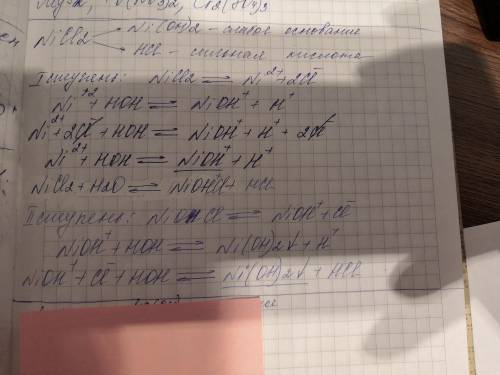 Ni(OH)2 - слабое основание
NiCl2
HCl - сильная кислота
I ступень: NiCl2 ⇌ Ni²⁺+2Cl⁻
Ni⁺² + HOH ⇌ NiOH⁺ + H⁺
Ni²⁺+2Cl⁻ + HOH ⇌ NiOH⁺ + H⁺ + 2Cl⁻
Ni²⁺ + HOH ⇌ NiOH⁺ + H⁺
NiCl2 + H2O ⇌ NiOHCl + HCl
II ступень: NiOHCl ⇌ NiOH⁺ + Cl⁻
NiOH⁺ + HOH ⇌ Ni(OH)2↓ + H⁺
NiOH⁺ + Cl⁻ + HOH ⇌ Ni(OH)2↓ + HCl